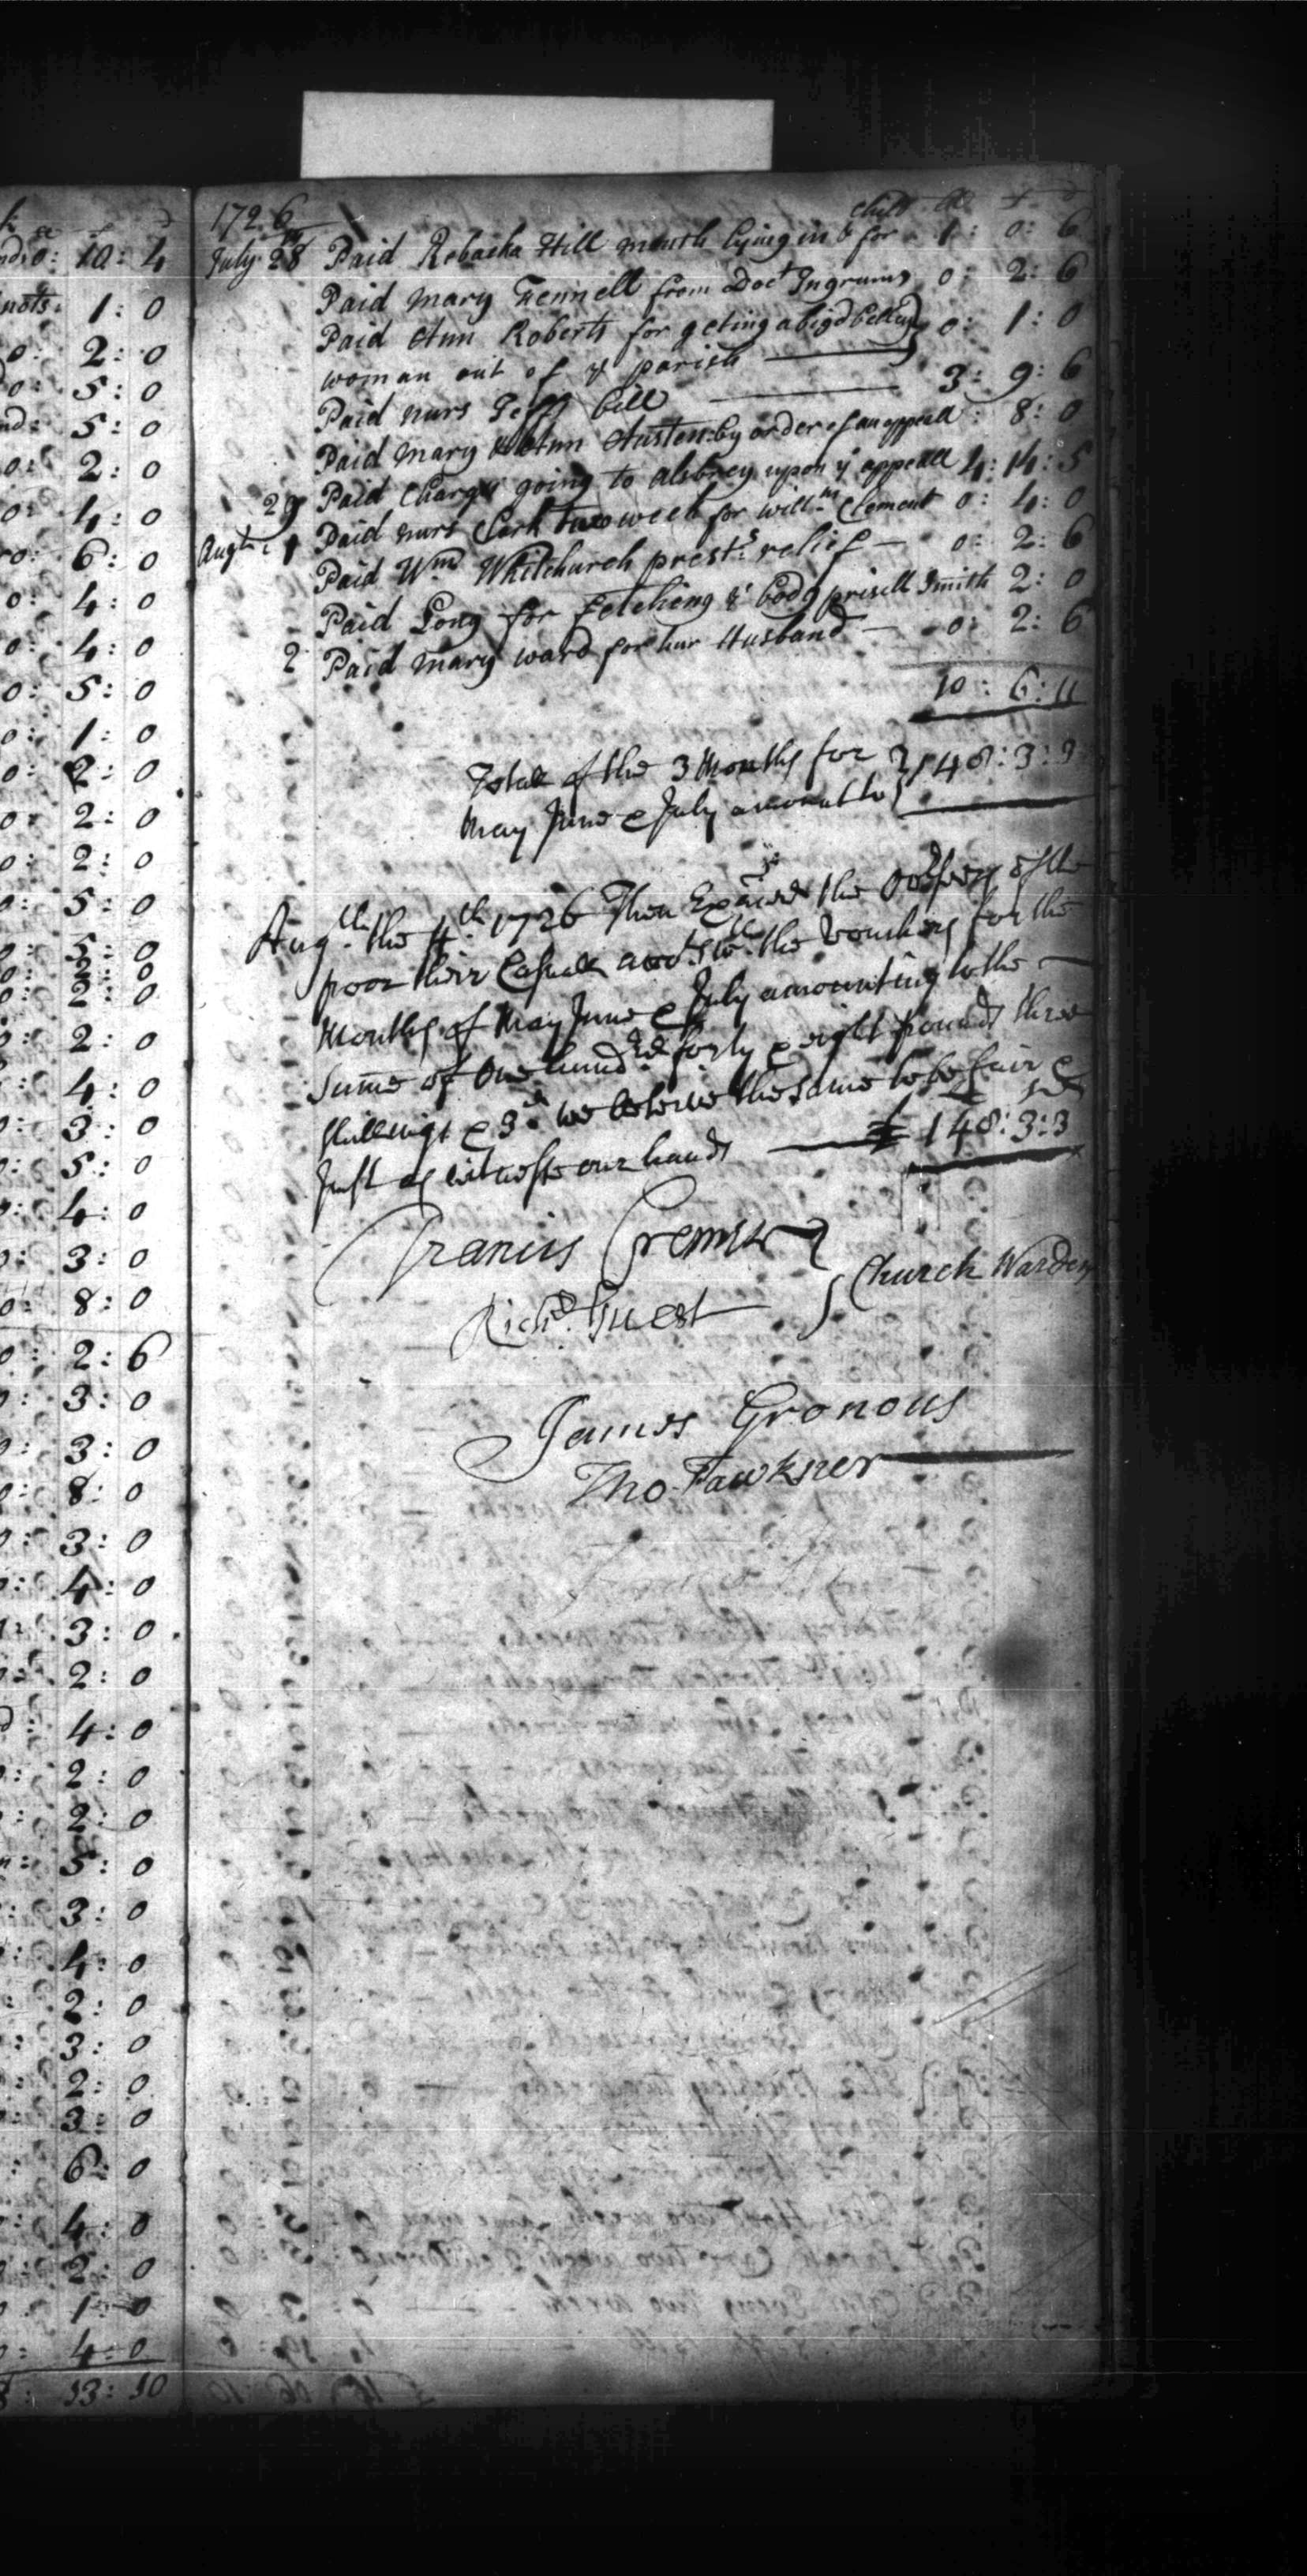 1726
child
July 28 Paid Rebacka Hill month lying in & for 1: 0: 6
Paid Mary Fennell from Doct Ingrums 0: 2: 6
Paid Ann Roberts for geting a bigd bellied
woman out of ye parish 0: 1: 0
Paid nurs Jeffs bill 3: 9: 6
Paid Mary & Ann Austen by order of an appeall : 8: 0
29 Paid Charges going to alsbrey upon ye appeall 4: 14: 5
Augt 1 Paid nurs Clark two week for Willm Clement 0: 4: 0
Paid Wm Whitchurch prests relief 0: 2: 6
Paid Long for fetcheng ye body prisell Smith 2: 0
2 Paid Mary Ward for hur Husband 0: 2: 6
10: 6: 11
Totall of the 3 Months for
May June & July amountto 148: 3: 3
Augth the 4th 1726 Then the of the
poor their Casuall accots wth the Vouchers for the
Months of May June & July amounting to the
Summe of One hundred forty & eight pounds three
shillings & 3d we beleive the same to be fair &
Just as witnesse our hands £ 148: 3: 3
Francis
Richd Guest Church Wardens
James Gronous
Tho Fawkner
10: 4
1: 0
2: 0
5: 0
5: 0
2: 0
4: 0
6: 0
4: 0
4: 0
5: 0
1: 0
2: 0
2: 0
2: 0
5: 0
5: 0
2: 0
2: 0
2: 0
4: 0
3: 0
5: 0
4: 0
3: 0
8: 0
2: 6
3: 0
3: 0
8: 0
3: 0
4: 0
3: 0
2: 0
4: 0
2: 0
2: 0
5: 0
3: 0
4: 0
2: 0
3: 0
2: 0
3: 0
6: 0
4: 0
2: 0
1: 0
4: 0
13: 10